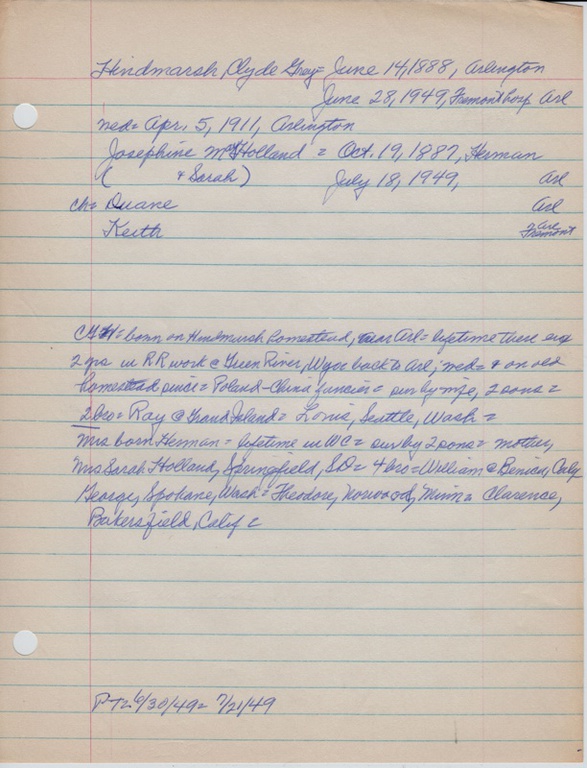 Hindmarsh, Clyde Grey= June 14, 1888, Arlington
June 28, 1949, Fremont hosp Arl
med= Apr. 5, 1911, Arlington
Josephine Holland = Oct. 19, 1887, Herman
( & Sarah) July 18, 1949, Arl
ch= Duane Arl
Keith Arl Fremont
CGH= born on Hindmarsh homestead, near Arl= lifetime there exc
2 yrs in RR work @ Green River, Wyo= back to Arl, med= & on old
homestead since= Poland-China fancier= sur by wife, 2 sons=
2 bro= Ray @ Grand Island= Louis, Seattle, Wash=
Mrs born Herman= lifetime in WC= sur by 2 sons= mother,
Mrs Sarah Holland, Springfield, SD= 4 bro= William @ Benicia, Calif
George, Spokane, Wash= Theodore, Norwood, Minn= Clarence,
Bakersfield, Calif=
PT= 6/30/49= 7/21/49